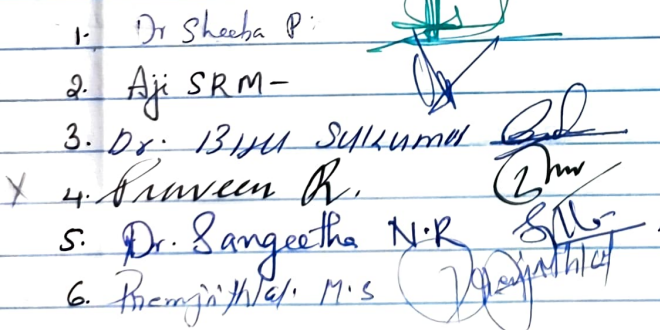 1. Dr Sheeba P.
2. Aji SRM
3. Dr. Biju Sukumar
4. Praveen R.
5. Dr. Sangeetha N.R
6. Premjithlal. M.S